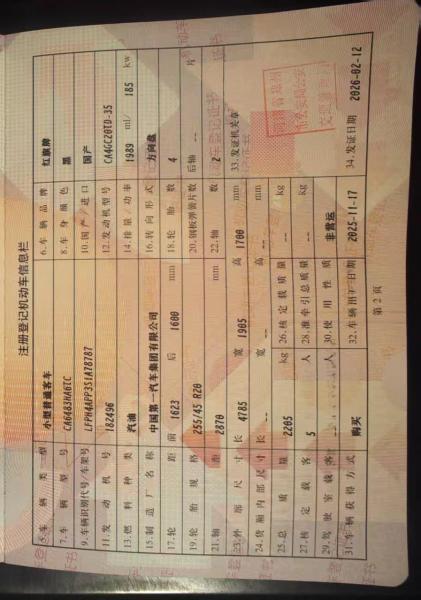 注册登记机动车信息栏
5.车辆类型 小型普通客车 6.车辆品牌 红旗牌
7.车辆型号 CA6483HA6TC 8.车身颜色 黑
9.车辆识别代号/车架号 LFPH4APP3S1A78787 10.国产/进口 国产
11.发动机号 182496 12.发动机型号 CA4GC20TD-35
13.燃料种类 汽油 14.排量/功率 1989 ml/ 185 kw
15.制造厂名称 中国第一汽车集团有限公司 16.转向形式 方向盘
17.轮距 前 1623 后 1600 mm 18.轮胎数 4
19.轮胎规格 255/45 R20 20.钢板弹簧片数 后轴 -- 片
21.轴距 2870 mm 22.轴数 2
23.外廓尺寸 长 4785 宽 1905 高 1700 mm 33.发证机关章
24.货厢内部尺寸 长 -- 宽 -- 高 -- mm
25.总质量 2205 kg 26.核定载质量 -- kg
27.核定载客 5 人 28.准牵引总质量 -- kg
29.驾驶室载客 -- 人 30.使用性质 非营运
31.车辆获得方式 购买 32.车辆出厂日期 2025-11-17 34.发证日期 2026-02-12
第 2 页